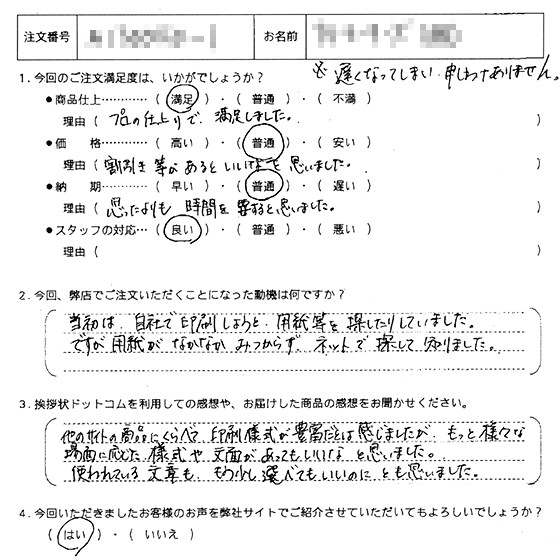 注文番号 お名前
※ 遅くなってしまい申しわけありません。
1. 今回のご注文満足度は、いかがでしょうか?
●商品仕上………… ( 満足 )・( 普通 )・( 不満 )
理由 ( プロの仕上りで、満足しました。 )
●価　格………… ( 高い )・( 普通 )・( 安い )
理由 ( 割引き等があるといいなと思いました。 )
●納　期………… ( 早い )・( 普通 )・( 遅い )
理由 ( 思ったよりも 時間を要すると思いました。 )
●スタッフの対応… ( 良い )・( 普通 )・( 悪い )
理由 ( )
2. 今回、弊店でご注文いただくことになった動機は何ですか?
当初は、自社で印刷しようと、用紙等を探したりしていました。
ですが用紙がなかなかみつからず、ネットで探して知りました。
3. 挨拶状ドットコムを利用しての感想や、お届けした商品の感想をお聞かせください。
他のサイトの商品にくらべて印刷様式が豊富だとは感じましたが、もっと様々な
場面に応じた様式や文面があってもいいなと思いました。
使われている文章も、もう少し選べてもいいのにとも思いました。
4. 今回いただきましたお客様のお声を弊社サイトでご紹介させていただいてもよろしいでしょうか?
( はい )・( いいえ )